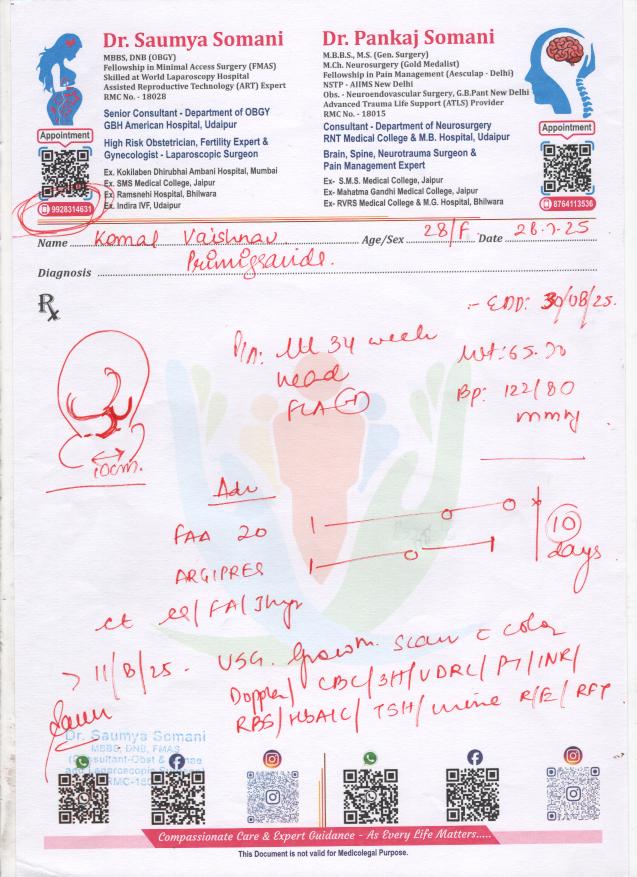 Dr. Saumya Somani
MBBS, DNB (OBGY)
Fellowship in Minimal Access Surgery (FMAS)
Skilled at World Laparoscopy Hospital
Assisted Reproductive Technology (ART) Expert
RMC No. - 18028
Senior Consultant - Department of OBGY
GBH American Hospital, Udaipur
High Risk Obstetrician, Fertility Expert &
Gynecologist - Laparoscopic Surgeon
Ex. Kokilaben Dhirubhai Ambani Hospital, Mumbai
Ex. SMS Medical College, Jaipur
Ex. Ramsnehi Hospital, Bhilwara
Ex. Indira IVF, Udaipur
Appointment
9928314631
Dr. Pankaj Somani
M.B.B.S., M.S. (Gen. Surgery)
M.Ch. Neurosurgery (Gold Medalist)
Fellowship in Pain Management (Aesculap - Delhi)
NSTP - AIIMS New Delhi
Obs. - Neuroendovascular Surgery, G.B.Pant New Delhi
Advanced Trauma Life Support (ATLS) Provider
RMC No. - 18015
Consultant - Department of Neurosurgery
RNT Medical College & M.B. Hospital, Udaipur
Brain, Spine, Neurotrauma Surgeon &
Pain Management Expert
Ex- S.M.S. Medical College, Jaipur
Ex- Mahatma Gandhi Medical College, Jaipur
Ex- RVRS Medical College & M.G. Hospital, Bhilwara
Appointment
8764113536
Name Komal Vaishnav Age/Sex 28/F Date 28-7-25
Diagnosis Primigravide.
Rx
:- EDD: 30/08/25.
P/A: Ut 34 week
Wt: 65.70
head
FLA +
BP: 122/80
mmHg
10cm.
Adv
FAA 20
10
days
ARGIPREG
ct /FA/
> 11/8/25. USG. Growth scan c color
Doppler/ CBC/3H/VDRL/PT/INR/
RBS/HBA1C/TSH/urine R/E/RFT
Dr. Saumya Somani
MBBS, DNB, FMAS
Compassionate Care & Expert Guidance - As Every Life Matters.....
This Document is not valid for Medicolegal Purpose.